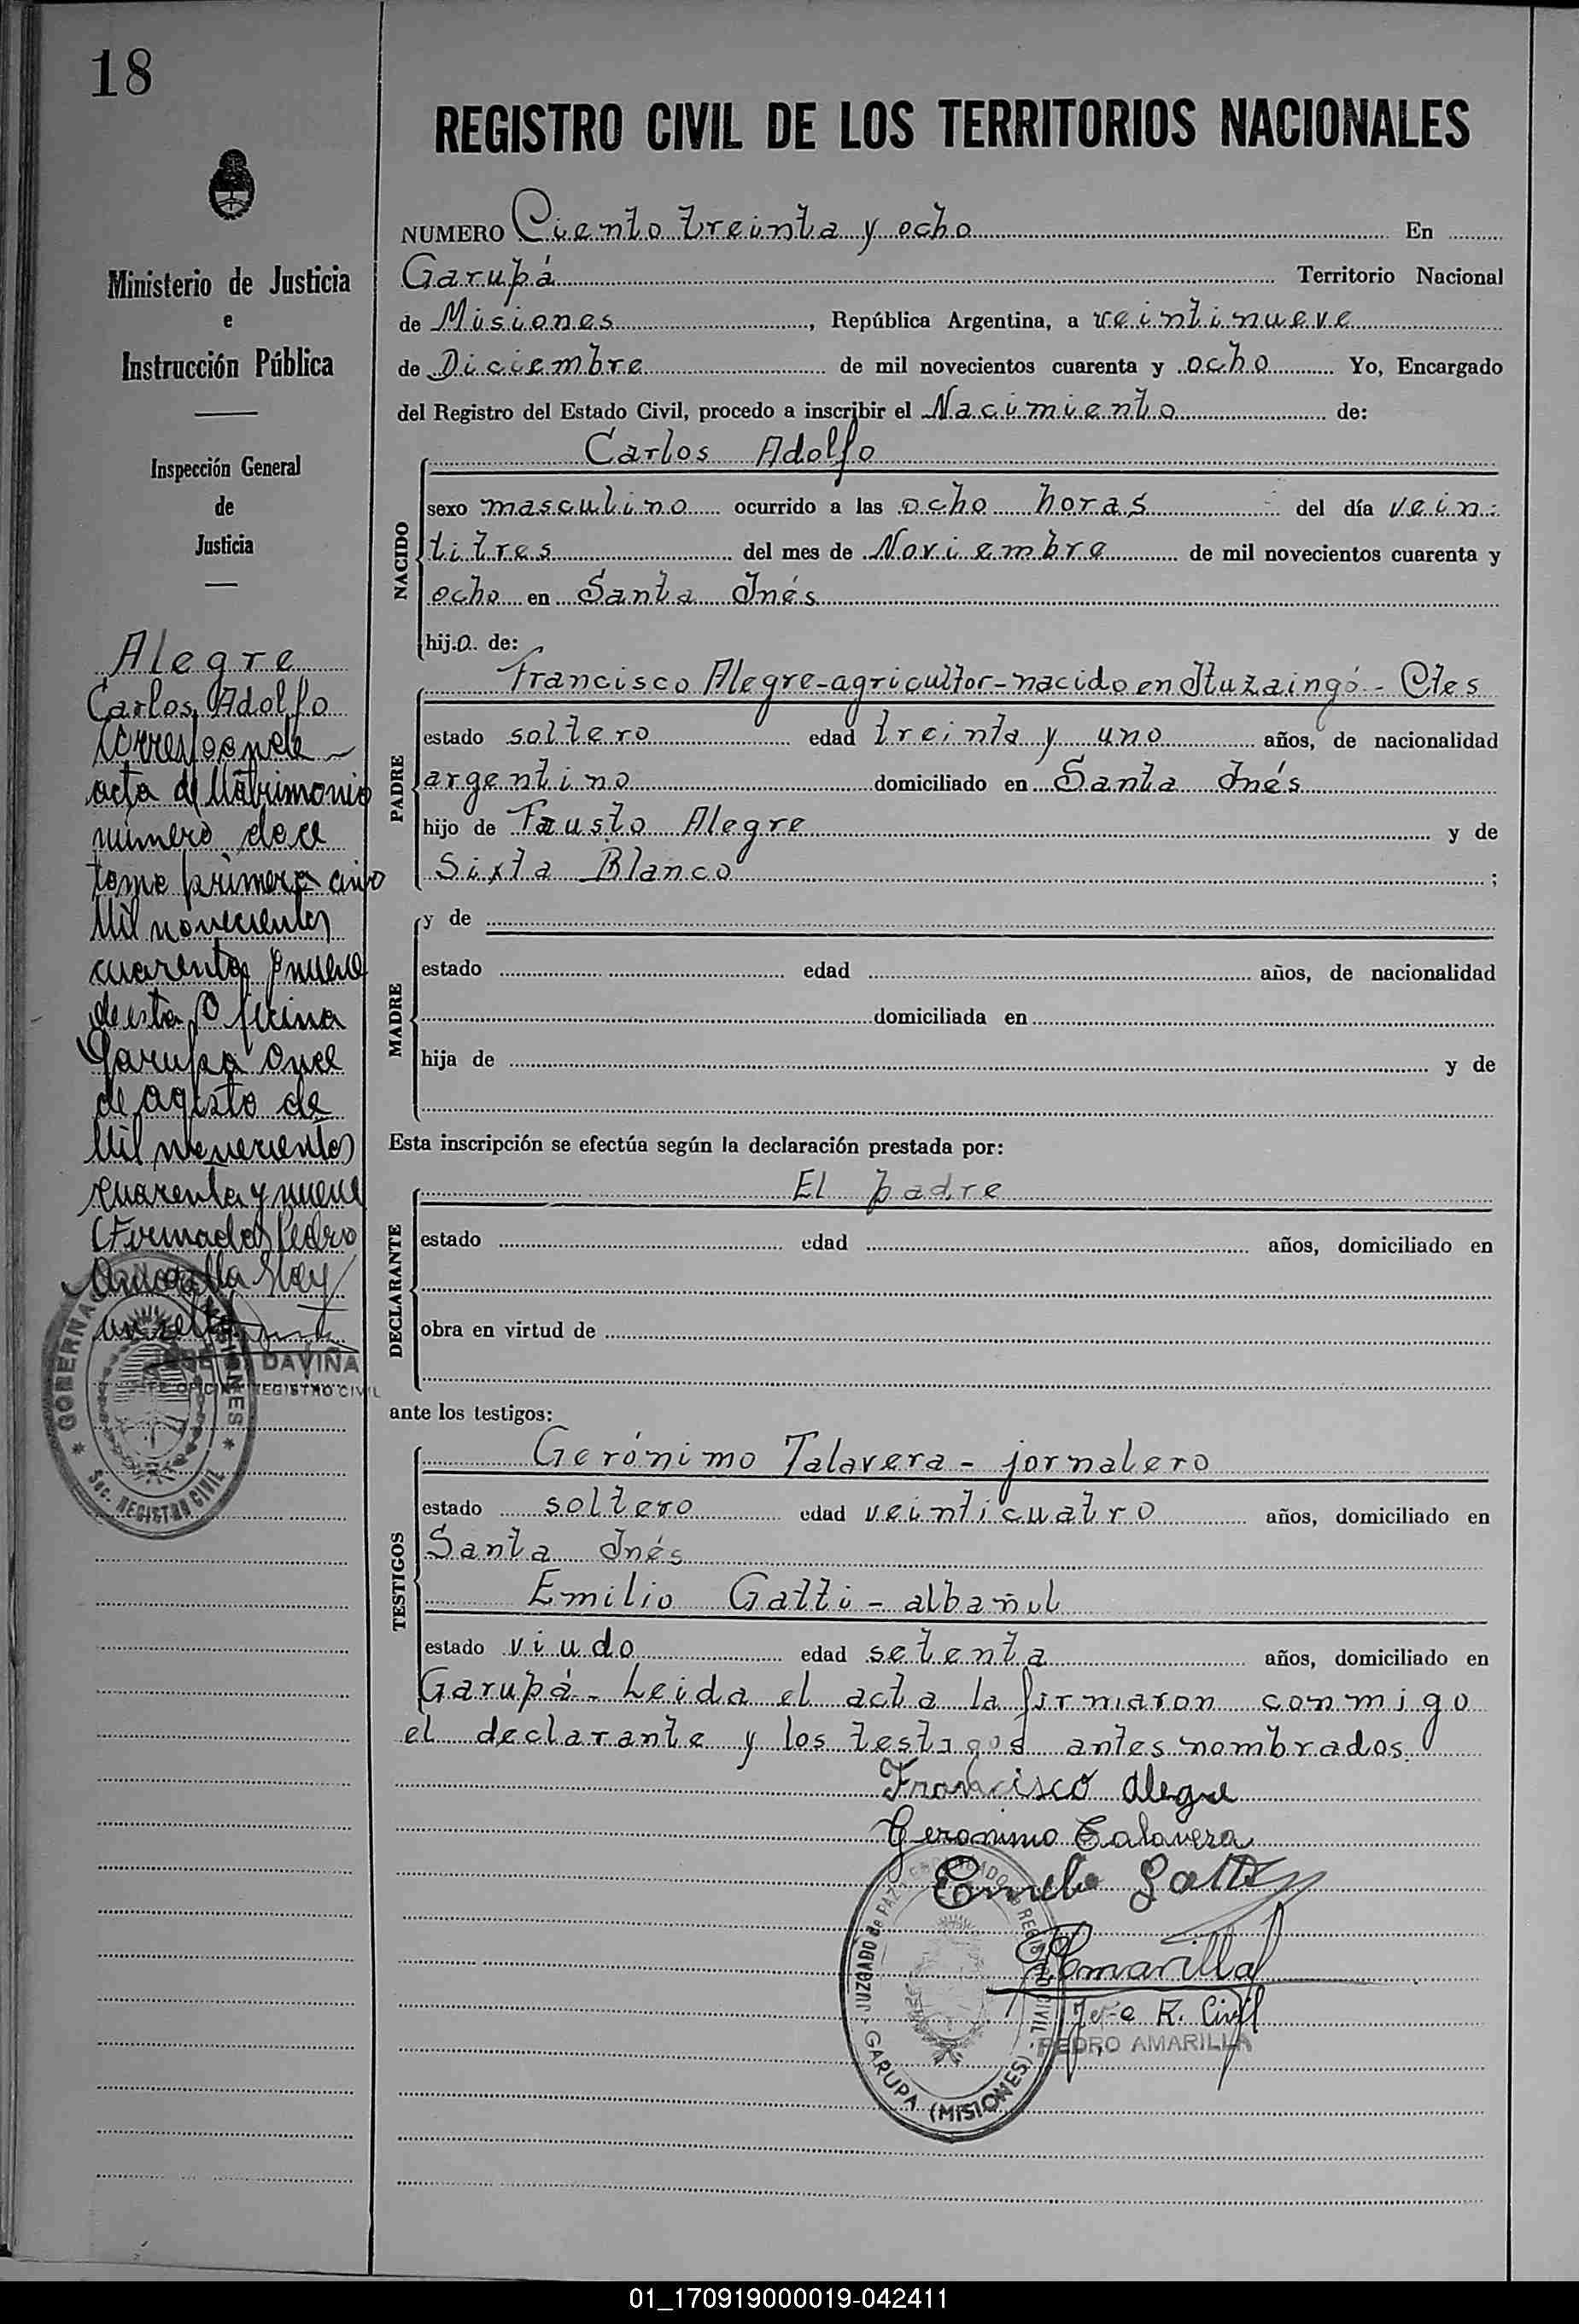 18
REGISTRO CIVIL DE LOS TERRITORIOS NACIONALES
Ministerio de Justicia
e
Instrucción Pública
Inspección General
de
Justicia
Alegre
Carlos Adolfo
Corresponde
acta de Matrimonio
número doce
tomo primero año
Mil novecientos
cuarenta y nueve
de esta Oficina
Garupá Once
de agosto de
Mil novecientos
cuarenta y nueve
(Firmado) Pedro
Amarilla Hay
un sello
DAVIÑA
OFICINA REGISTRO CIVIL
GOBERNA IONES
Sec. REGISTRO CIVIL
NUMERO Ciento treinta y ocho En
Garupá Territorio Nacional
de Misiones, República Argentina, a veintinueve
de Diciembre de mil novecientos cuarenta y ocho Yo, Encargado
del Registro del Estado Civil, procedo a inscribir el Nacimiento de:
NACIDO
Carlos Adolfo
sexo masculino ocurrido a las ocho horas del día vein-
titres del mes de Noviembre de mil novecientos cuarenta y
ocho en Santa Inés
hijo de:
PADRE
Francisco Alegre-agricultor-nacido en Ituzaingó-Ctes
estado soltero edad treinta y uno años, de nacionalidad
argentino domiciliado en Santa Inés
hijo de Fausto Alegre y de
Sixta Blanco;
MADRE
y de
estado edad años, de nacionalidad
domiciliada en
hija de y de
Esta inscripción se efectúa según la declaración prestada por:
DECLARANTE
El padre
estado edad años, domiciliado en
obra en virtud de
ante los testigos:
TESTIGOS
Gerónimo Talavera - jornalero
estado soltero edad veinticuatro años, domiciliado en
Santa Inés
Emilio Gatti - albañil
estado viudo edad setenta años, domiciliado en
Garupá - Leida el acta la firmaron conmigo
el declarante y los testigos antes nombrados.
Francisco Alegre
Geronimo Talavera
Emilio Gatti
PAmarilla
Jefe R. Civil
PEDRO AMARILLA
JUZGADO de PAZ Y ENCARGADO REGISTRO CIVIL
GARUPA (MISIONES)
01_170919000019-042411